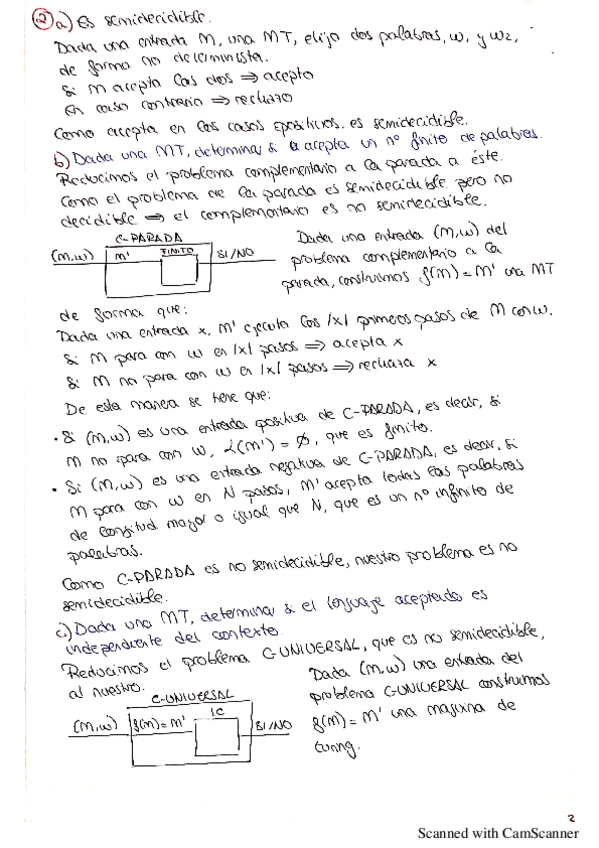 ② a) Es semidecidible.
Dada una entrada M, una MT, elijo dos palabras, w₁ y w₂,
de forma no determinista.
Si M acepta las dos ⟹ acepto
En caso contrario ⟹ rechazo
Como acepta en los casos positivos. es semidecidible.
b) Dada una MT, determinar si acepta un nº finito de palabras.
Reducimos el problema complementario a la parada a éste.
Como el problema de la parada es semidecidible pero no
decidible ⟹ el complementario es no semidecidible.
C-PARADA
(M,w) M' FINITO SI/NO
Dada una entrada (M,w) del
problema complementario a la
parada, construimos f(M) = M' una MT
de forma que:
Dada una entrada x, M' ejecuta los |x| primeros pasos de M con w.
Si M para con w en |x| pasos ⟹ acepta x
Si M no para con w en |x| pasos ⟹ rechaza x
De esta manera se tiene que:
• Si (M,w) es una entrada positiva de C-PARADA, es decir, si
M no para con w, L(M') = ∅, que es finito.
• Si (M,w) es una entrada negativa de C-PARADA, es decir, si
M para con w en N pasos, M' acepta todas las palabras
de longitud mayor o igual que N, que es un nº infinito de
palabras.
Como C-PARADA es no semidecidible, nuestro problema es no
semidecidible.
c) Dada una MT, determinar si el lenguaje aceptado es
independiente del contexto.
Reducimos el problema C-UNIVERSAL, que es no semidecidible,
al nuestro.
C-UNIVERSAL
(M,w) f(M)=M' IC SI/NO
Dada (M,w) una entrada del
problema C-UNIVERSAL construimos
f(M) = M' una maquina de
turing.
2
Scanned with CamScanner